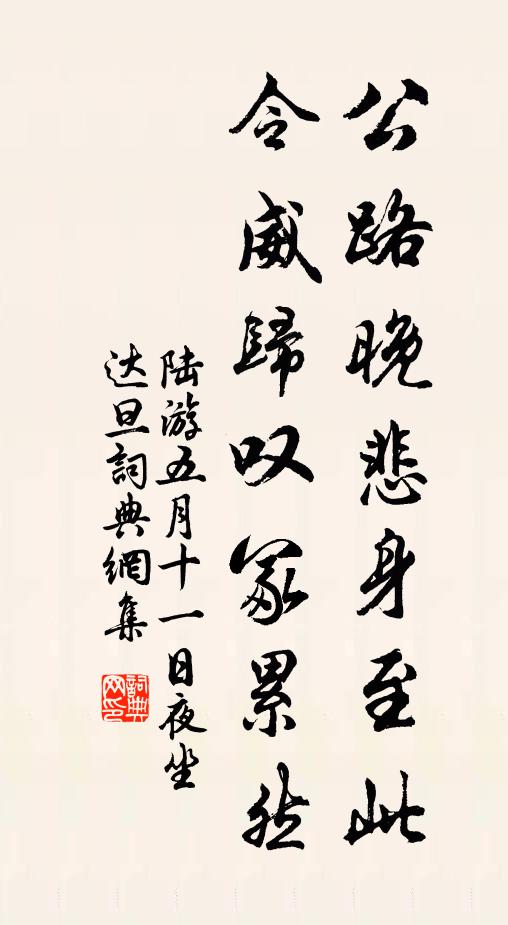 公路晚悲身至此
令威歸叹冢累然
陆游五月十一日夜坐
达旦詞典網集
詞典网印